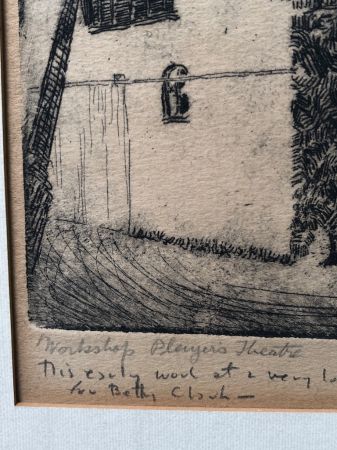 Workshop Players Theatre
This early work at a very
for Betty Clark —